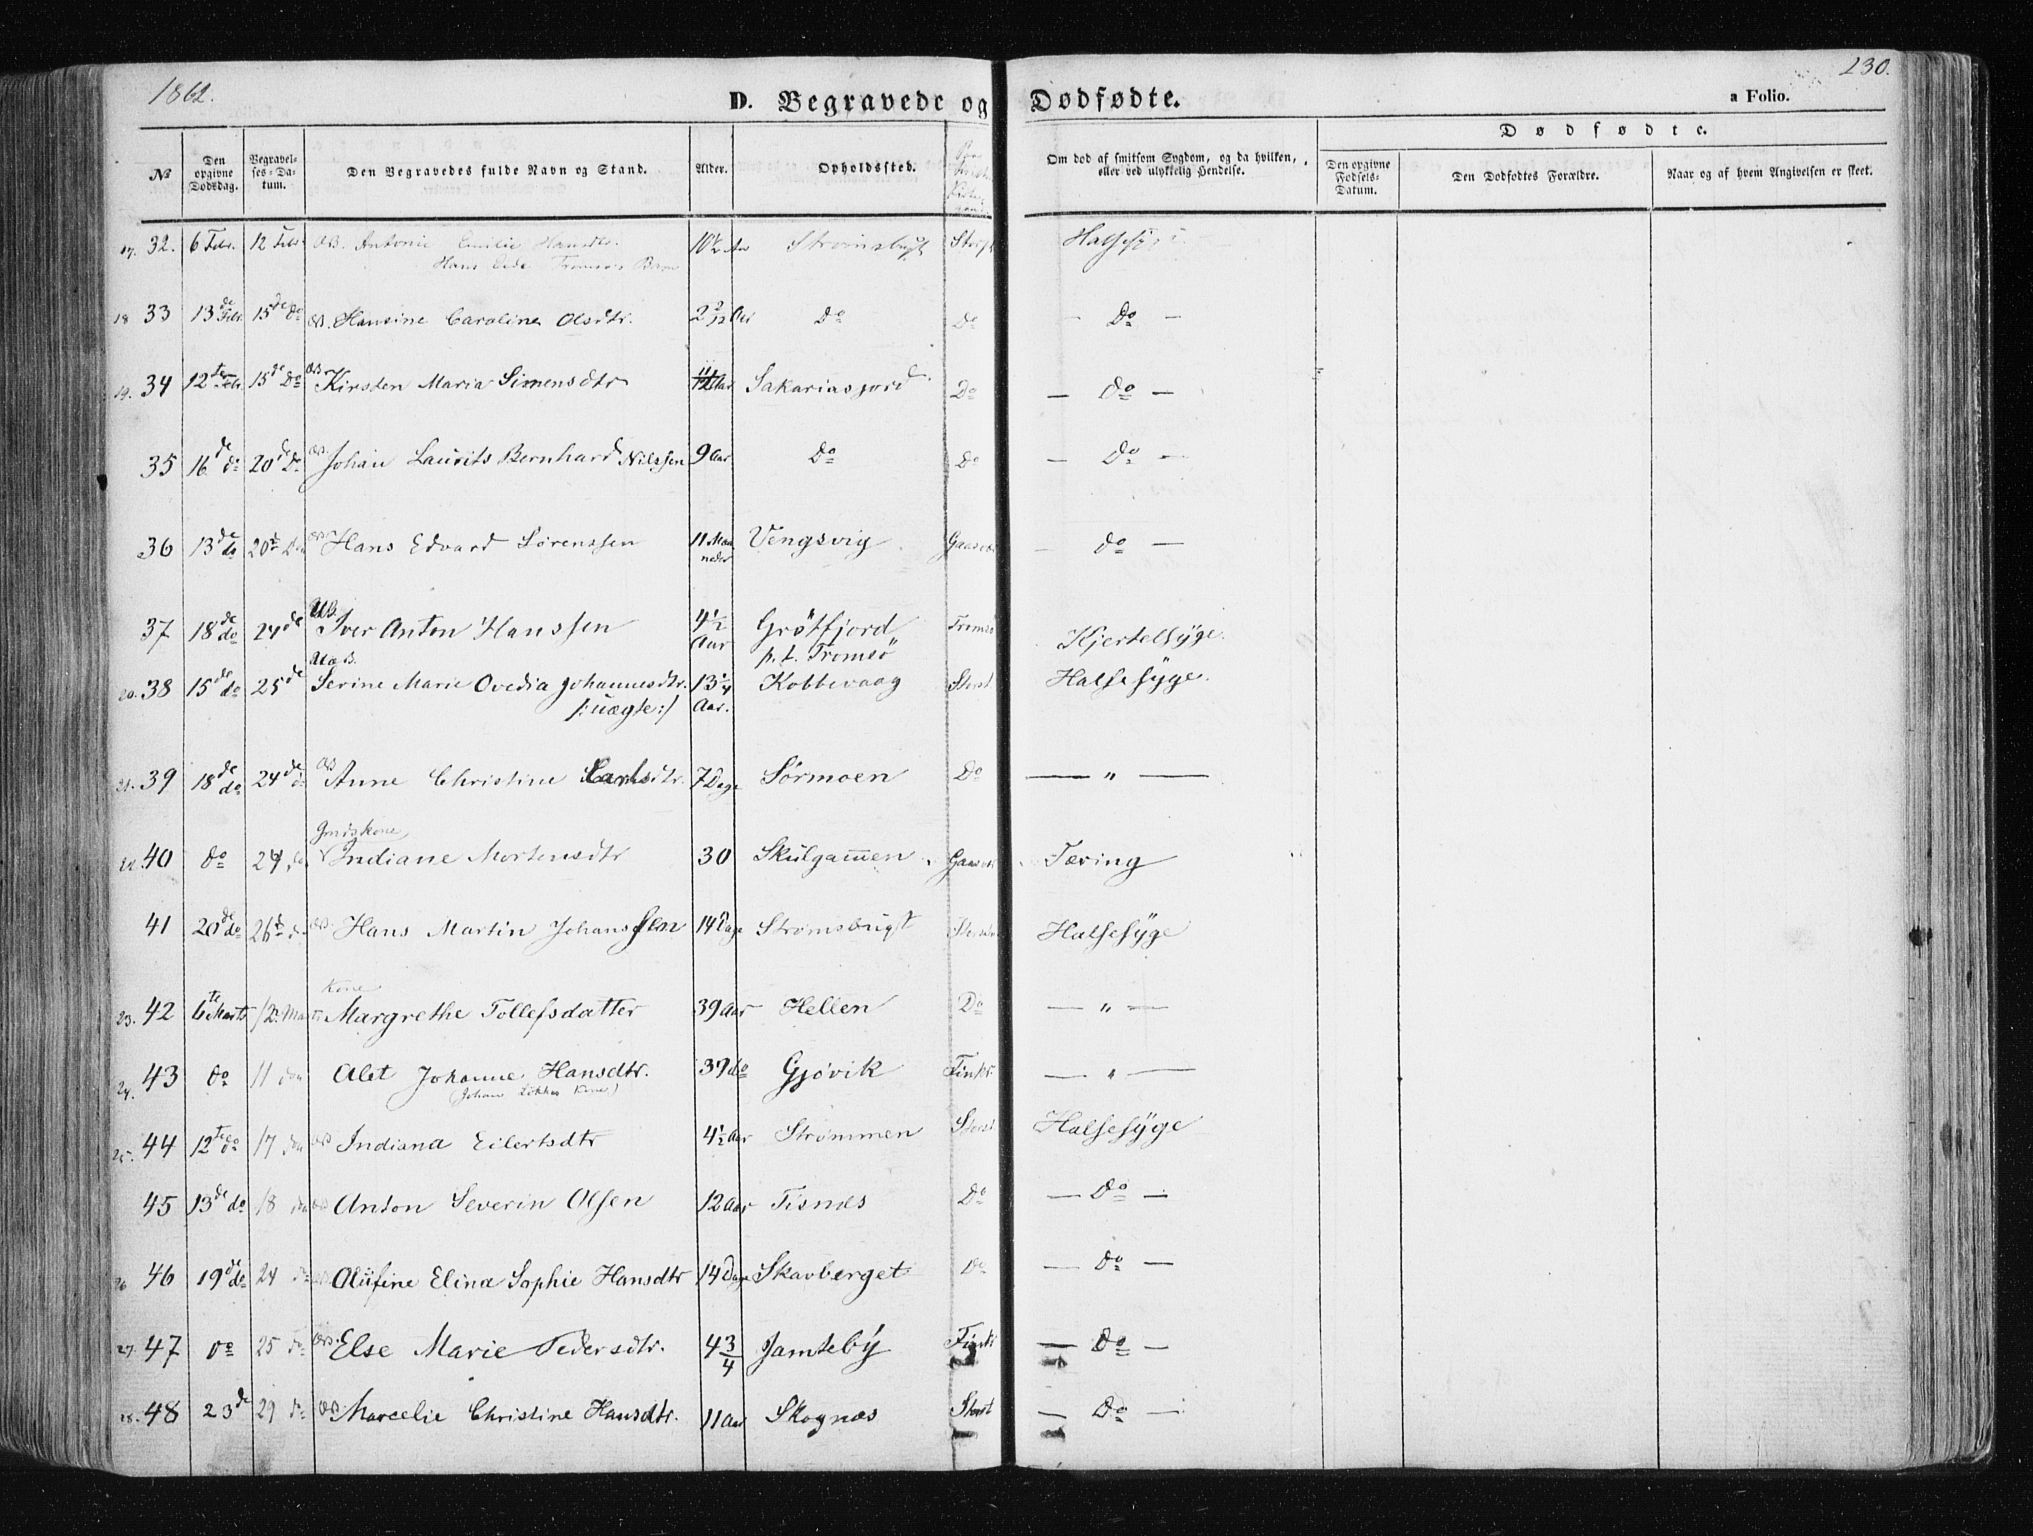 1862.
230.
D. Begravede og Dødfødte.
a Folio.
№
Den opgivne Dødsdag.
Begravelses-Datum.
Den Begravedes fulde Navn og Stand.
Alder.
Opholdssted.
Om død af smitsom Sygdom, og da hvilken, eller ved ulykkelig Hendelse.
Dødfødte.
Den opgivne Fødsels-Datum.
Den Dødfødtes Forældre.
Naar og af hvem Angivelsen er skeet.
17. 32. 6 Febr. 12 Febr. Antonie Emilie Hansdtr. 10½ Aar Strømsbugt Storst
Hans Tromsø Barn
18 33 13de Febr. 15de Do Hansine Caroline Olsdtr. 2 2/12 Aar Do Do — Do —
19. 34 12te Febr. 15de Do Kirsten Maria Simensdtr 11 Aar Sakariasjord Do — Do —
35 16de do 20de Do Johan Laurits Bernhard Nilssen 9 Aar Do Do — Do —
36 13de do 20de Hans Edvard Sørenssen 11 Maaneder Vengsvig Gaasvær — do —
37 18de do 24de UB. Iver Anton Hanssen 4½ Aar Grøtfjord p. t. Tromsö Tromsö Kjertelsyge.
20. 38 15de do 25de Serine Marie Ovedia Johannesdtr. 13¼ Aar. Kobbevaag Storst Halsesyge.
/: uægte :/
21. 39 18de do 24de Anne Christine Carlsdtr. 7 Dage Sørmoen Do — " —
Gmdskone,
22. 40 do 24 do Indiane Mortensdtr 30 Skulgam̄en Gaasvær Tæring
41 20de do 26de Hans Martin Johanssen 14 Dage Strømsbugt Storst Halsesyge
Kone
23. 42 6te Marts 12. Marts Margrethe Tollefsdatter 39 Aar Hellen Do — " —
24. 43 do 11 do Alet Johanne Hansdtr. 39 do Gjøvik Finkr. — " —
(Johan Løkkes Kone)
25. 44 12te do 17 do Indiana Eilertsdtr 4½ Aar Strømmen Storst Halsesyge
45 13de do 18 do Anton Severin Olsen 12 Aar Tisnæs Do — Do —
26 46 19de do 24 do Olufine Elina Sophie Hansdtr 14 Dage Skavberget Do — Do —
27. 47 do 25 do Else Marie Pedersdtr. 4¾ Jamteby Finkr — Do —
28. 48 23de 29 do Marcelie Christine Hansdtr. 11 Aar Skognæs Storst — Do —